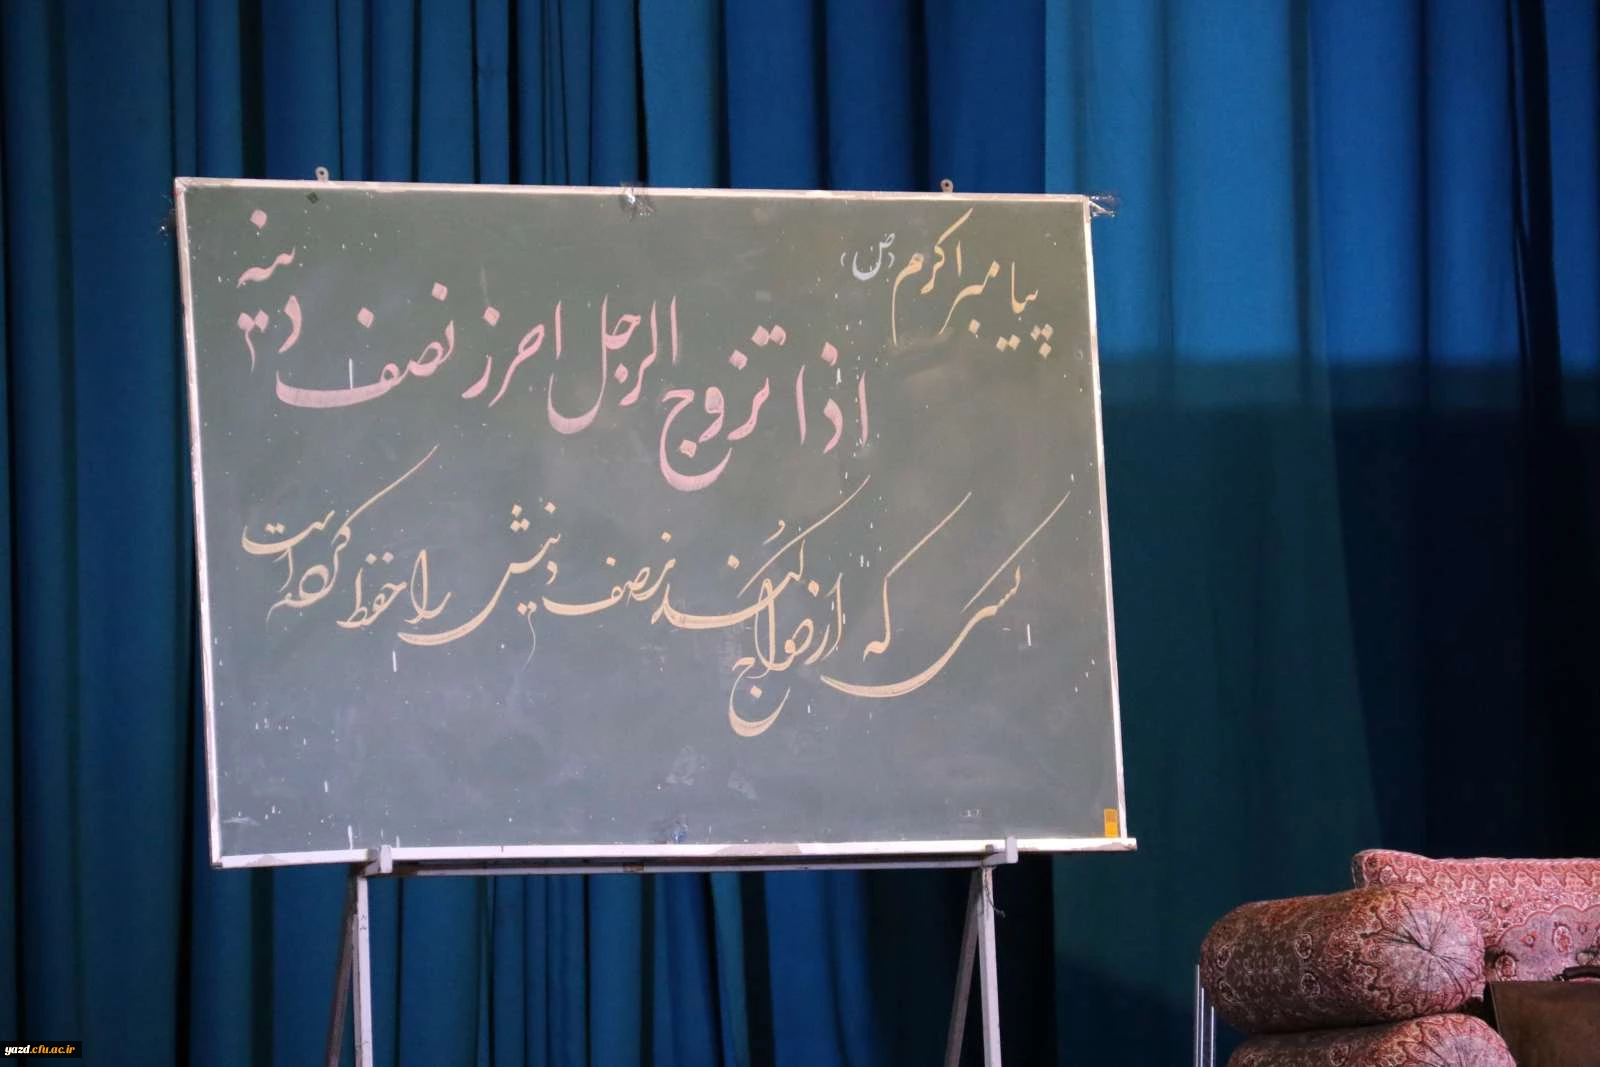 پیامبر اکرم (ص)
اذا تزوج الرجل احرز نصف دینه
کسی که ازدواج کند نصف دینش را حفظ کرده است
yazd.cfu.ac.ir